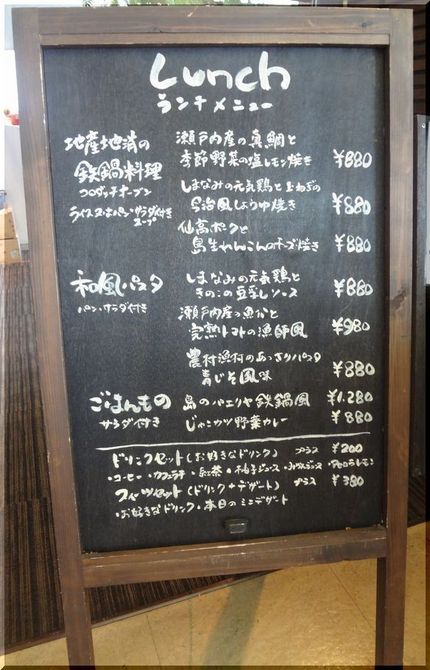 Lunch
ランチメニュー
地産地消の
鉄鍋料理
コロダッチオーブン
ライス又はパン・サラダ付き
スープ
瀬戸内産の真鯛と
季節野菜の塩レモン焼き ¥880
しまなみの元気鶏と玉ねぎの
今治風しょうゆ焼き ¥880
仙高ポークと
島生れんこんのチーズ焼き ¥880
和風パスタ
パン・サラダ付き
しまなみの元気鶏と
きのこの豆乳ソース ¥880
瀬戸内産の魚介と
完熟トマトの漁師風 ¥980
農村漁村のあっさりパスタ
青じそ風味 ¥880
ごはんもの
サラダ付き
島のパエリヤ鉄鍋風 ¥1,280
じゃこカツ野菜カレー ¥880
ドリンクセット(お好きなドリンク) プラス ¥200
・コーヒー・カフェラテ・紅茶・柚子ジュース・みかんジュース
スイーツセット(ドリンク+デザート) プラス ¥380
・お好きなドリンク・本日のミニデザート